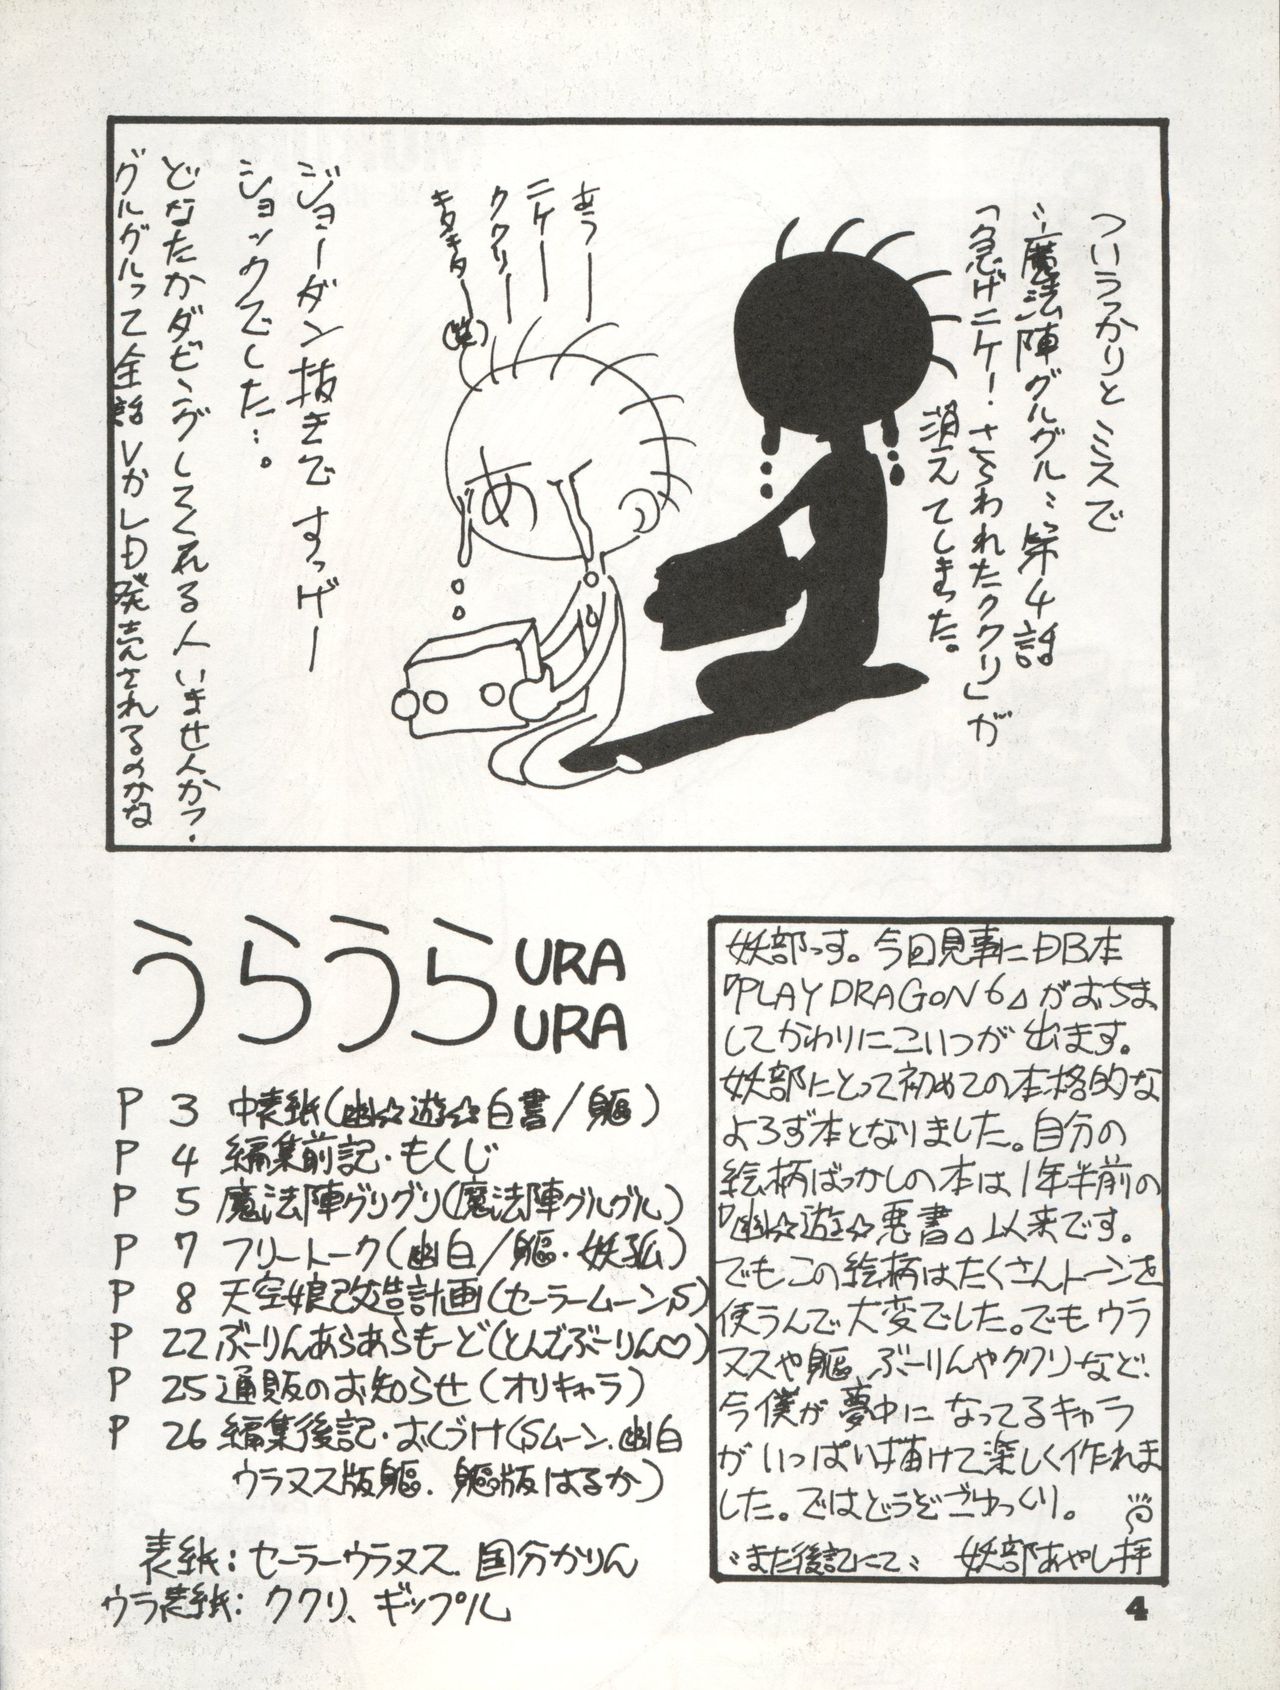 ついうっかりとミスで
〝魔法陣グルグル〟第4話
「急げニケー!さらわれたククリ」が
消えてしまった。
あうー
ニケー
ククリー
キタキター
(笑)
ジョーダン抜きですっげー
ショックでした…。
どなたかダビングしてくれる人いませんか?
グルグルって全話しかLD発売されるのかな
あ
うらうら
URA
URA
P 3 中表紙(幽☆遊☆白書/軀)
P 4 編集前記・もくじ
P 5 魔法陣グリグリ(魔法陣グルグル)
P 7 フリートーク(幽白/軀・妖狐)
P 8 天空娘改造計画(セーラームーンS)
P 22 ぶーりんあらあらもーど(とんでぶーりん♡)
P 25 通販のお知らせ(オリキャラ)
P 26 編集後記・おくづけ(Sムーン.幽白
ウラヌス版軀.軀版はるか)
表紙:セーラーウラヌス.国分かりん
ウラ表紙:ククリ、ギップル
妖部っす。今回見事にDB本
『PLAY DRAGON6』がおちま
してかわりにこいつが出ます。
妖部にとって初めての本格的な
よろず本となりました。自分の
絵柄ばっかしの本は1年半前の
『幽☆遊☆悪書』以来です。
でもこの絵柄はたくさんトーンを
使うんで大変でした。でもウラ
ヌスや軀、ぶーりんやククリなど、
今僕が夢中になってるキャラ
がいっぱい描けて楽しく作れま
した。ではどうぞごゆっくり。
〝また後記にて〟 妖部あやし拝
4